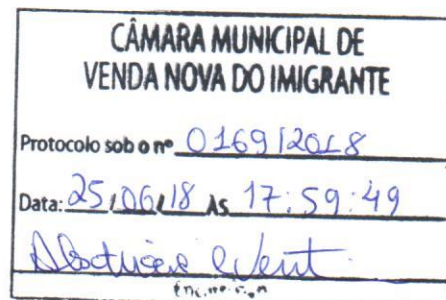 CÂMARA MUNICIPAL DE
VENDA NOVA DO IMIGRANTE
Protocolo sob o nº 0169/2018
Data: 25/06/18 às 17:59:49